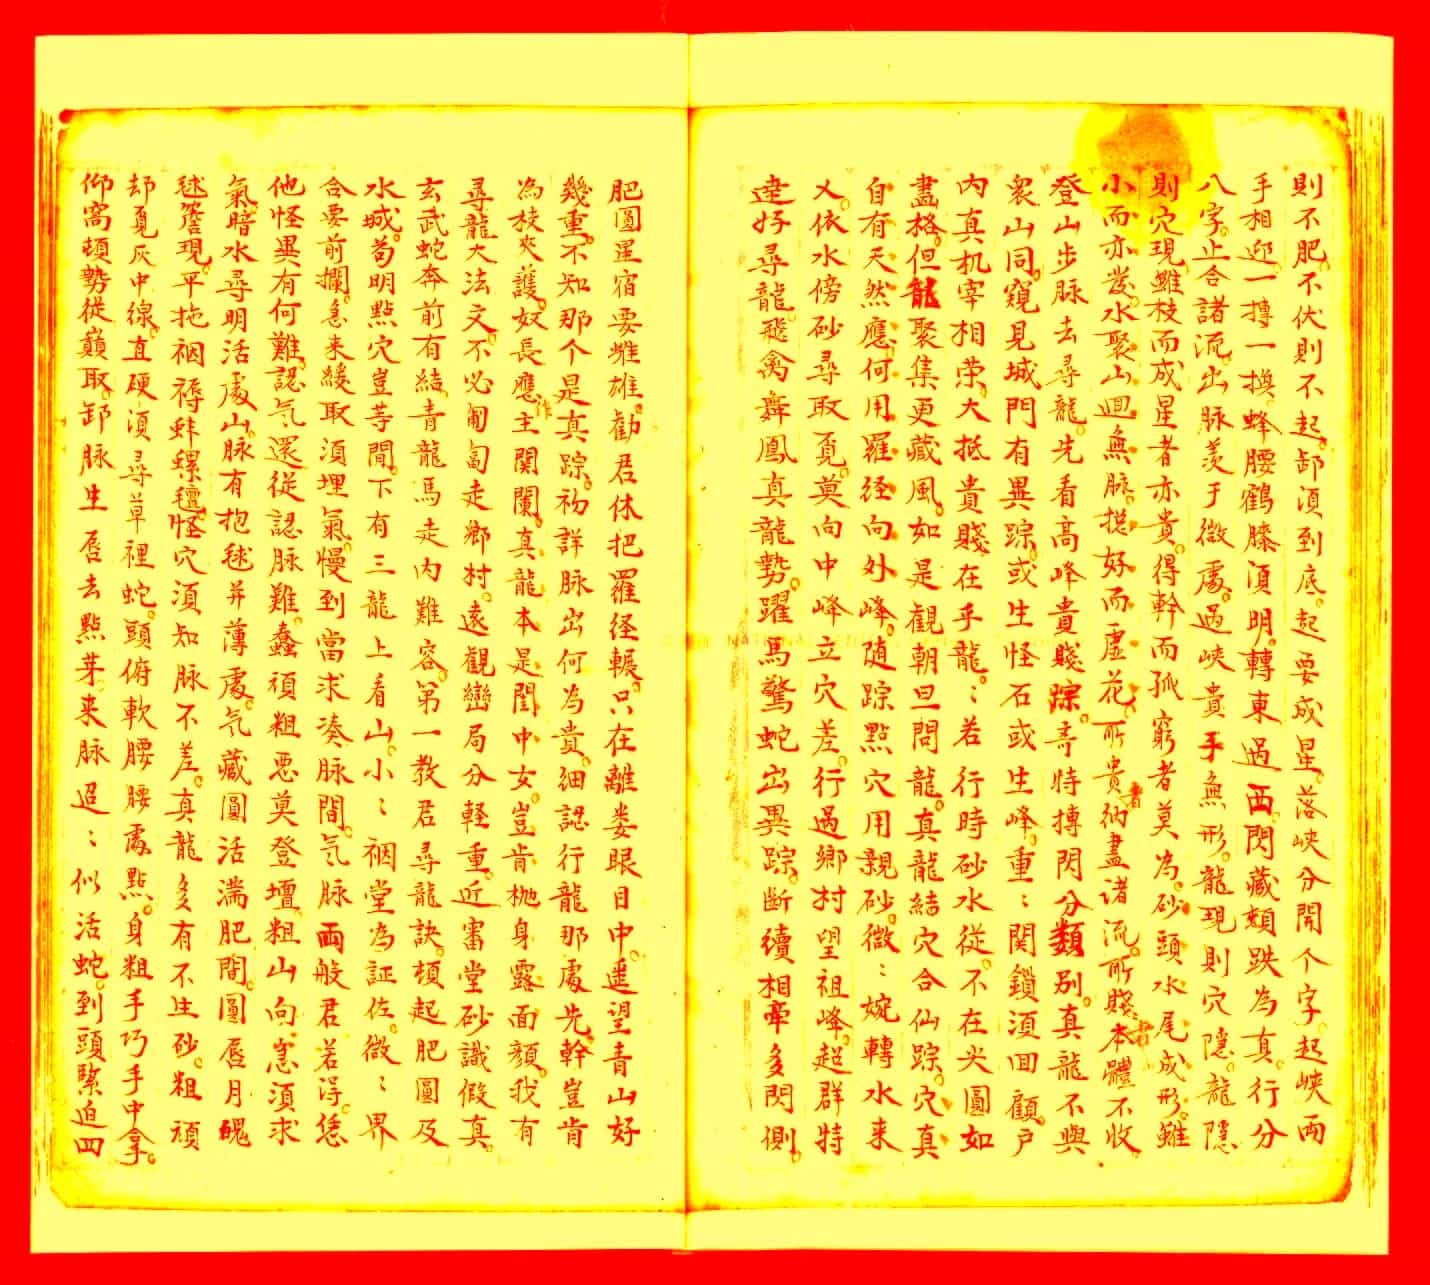 則不肥。不伏則不起。卸須到底。起要成星。落峽分開个字。起峽兩
手相迎。一摶一換。蜂腰鶴膝須明。轉東過西。閃藏頰跌為真。行分
八字。止合諸流。出脉羡于微處。過峽貴手無形。龍現則穴隱。龍隱
則穴現。雖枝而成星者亦貴。得幹而孤窮者莫為。砂頭水尾成形。雖
小而亦發。水聚山迴無脉。摸好而虛花。所貴者納盡諸流。所賤者本體不收
登山步脉去尋龍。先看高峰貴賤踪。奇特摶閃分類別。真龍不與
衆山同。窺見城門有異踪。或生怪石或生峰。重〻関鎖須回顧。戶
內真机宰相荣。大抵貴賤在乎龍。〻若行時砂水從。不在尖圓如
畫格。但龍聚集更藏風。如是觀朝旦問龍。真龍結穴合仙踪。穴真
自有天然應。何用羅经向外峰。随踪點穴用親砂。微〻婉轉水来
乂。依水傍砂尋取覔。莫向中峰立穴差。行過鄉村望祖峰。起群特
達好尋龍。飛禽舞鳳真龍勢。躍馬驚蛇出異踪。断續相牽多閃側。
肥圓星宿要雌雄。勸君休把羅径輾。只在離婁眼目中。遥望青山好
幾重。不知那个是真踪。初詳脉出何為貴。細認行龍那處先。幹豈肯
為枝夾護。奴長應作主関闌。真龍本是閨中女。豈肯抛身露面顏。我有
尋龍大法文。不必匍匐走鄉村。遠觀巒局分軽重。近審堂砂識假真。
玄武蛇奔前有結。青龍馬走內難容。第一教君尋龍訣。頓起肥圓及
水城。苟明點穴豈等閒。下有三龍上看山。小〻裀堂為証佐。微〻界
合要前攔。急来緩取須埋氣。慢到當求凑脉間。气脉両般君若得。恁
他怪異有何難。認气還從認脉難。蠢頑粗悪莫登壇。粗山向裏須求
氣。暗水尋明活處山。脉有抱毬并薄處。气藏圓活滿肥間。圓唇月魄
毬簷現。平拖裀褥蚌螺氊。怪穴須知脉不差。真龍多有不生砂。粗頑
却覔灰中線。直硬須尋草裡蛇。頭俯軟腰腰處點。身粗手巧手中拿。
仰窩頓勢從巔取。卸脉生唇去點芽。来脉迢〻似活蛇。到頭緊迫四